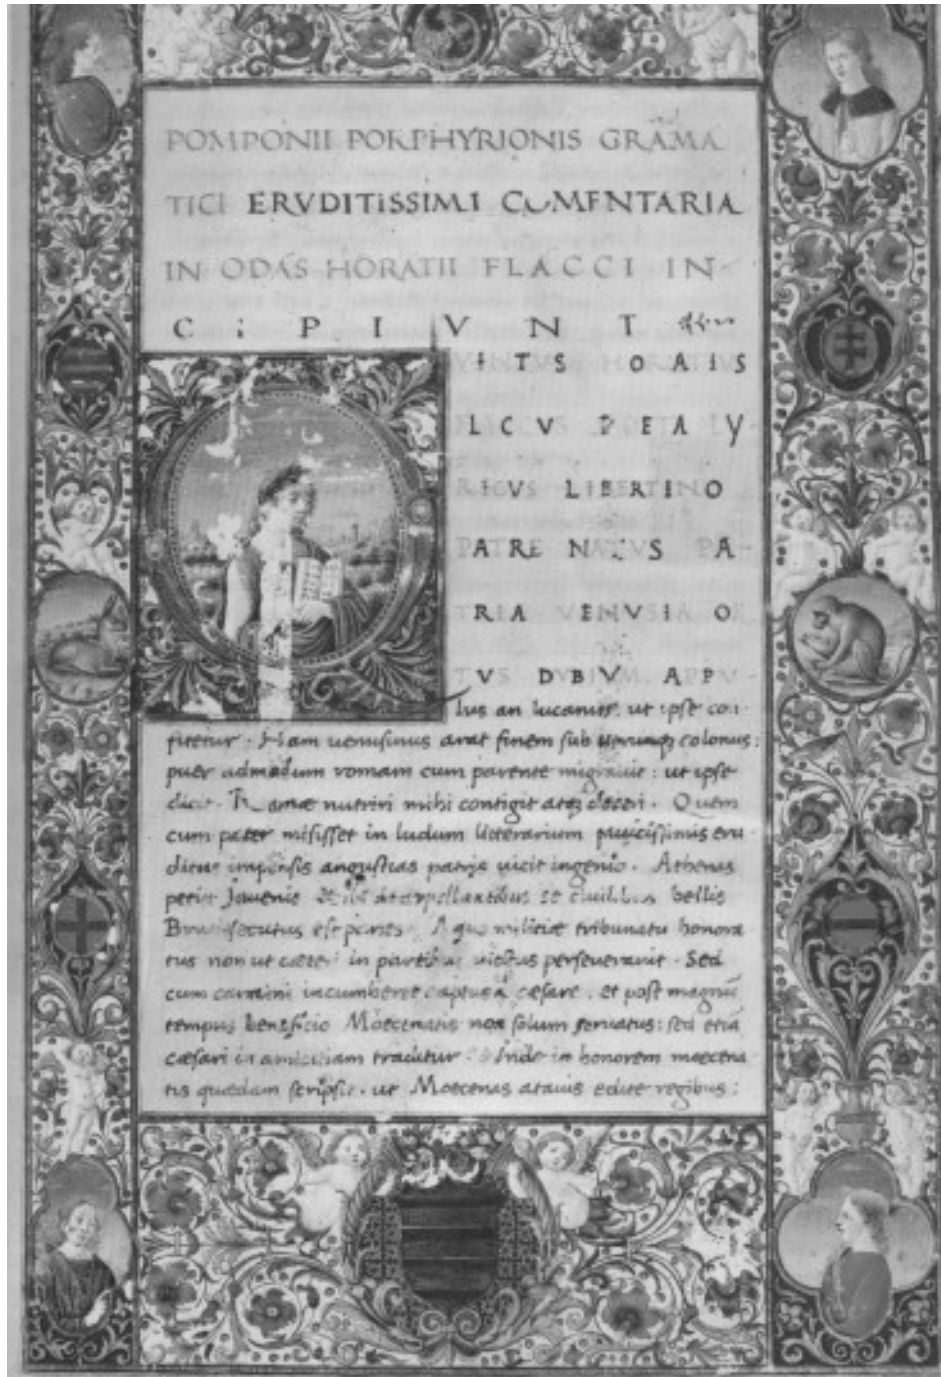 POMPONII PORPHYRIONIS GRAMA
TICI ERVDITISSIMI CUMENTARIA
IN ODAS HORATII FLACCI IN-
CIPIVNT
VINTVS HORATIVS
FLACCVS POETA LY
RICVS LIBERTINO
PATRE NATVS PA-
TRIA VENVSIA OR
TVS DVBIVM APPV-
lus an lucanus: ut ipse con
fitetur. Nam uenusinus arat finem sub colonus:
puer admodum romam cum parente migrauit: ut ipse
dicit. Romæ nutriri mihi contigit atq; doceri. Quem
cum pater misisset in ludum litterarium eru
ditus impensis angustias patris uicit ingenio. Athenas
petiit Iauenis bellis
Bruti secutus est partes. A quo militiæ tribunatu honora
tus non ut cæteri in partibus uictus perseuerauit. Sed
cum carmini incumberet captus a cæsare. et post magnũ
tempus beneficio Moecenatis non solum seruatus: sed etiã
cæsari in amicitiam traditur. Inde in honorem moecena
tis quædam scripsit. ut Moecenas atauis edite regibus: